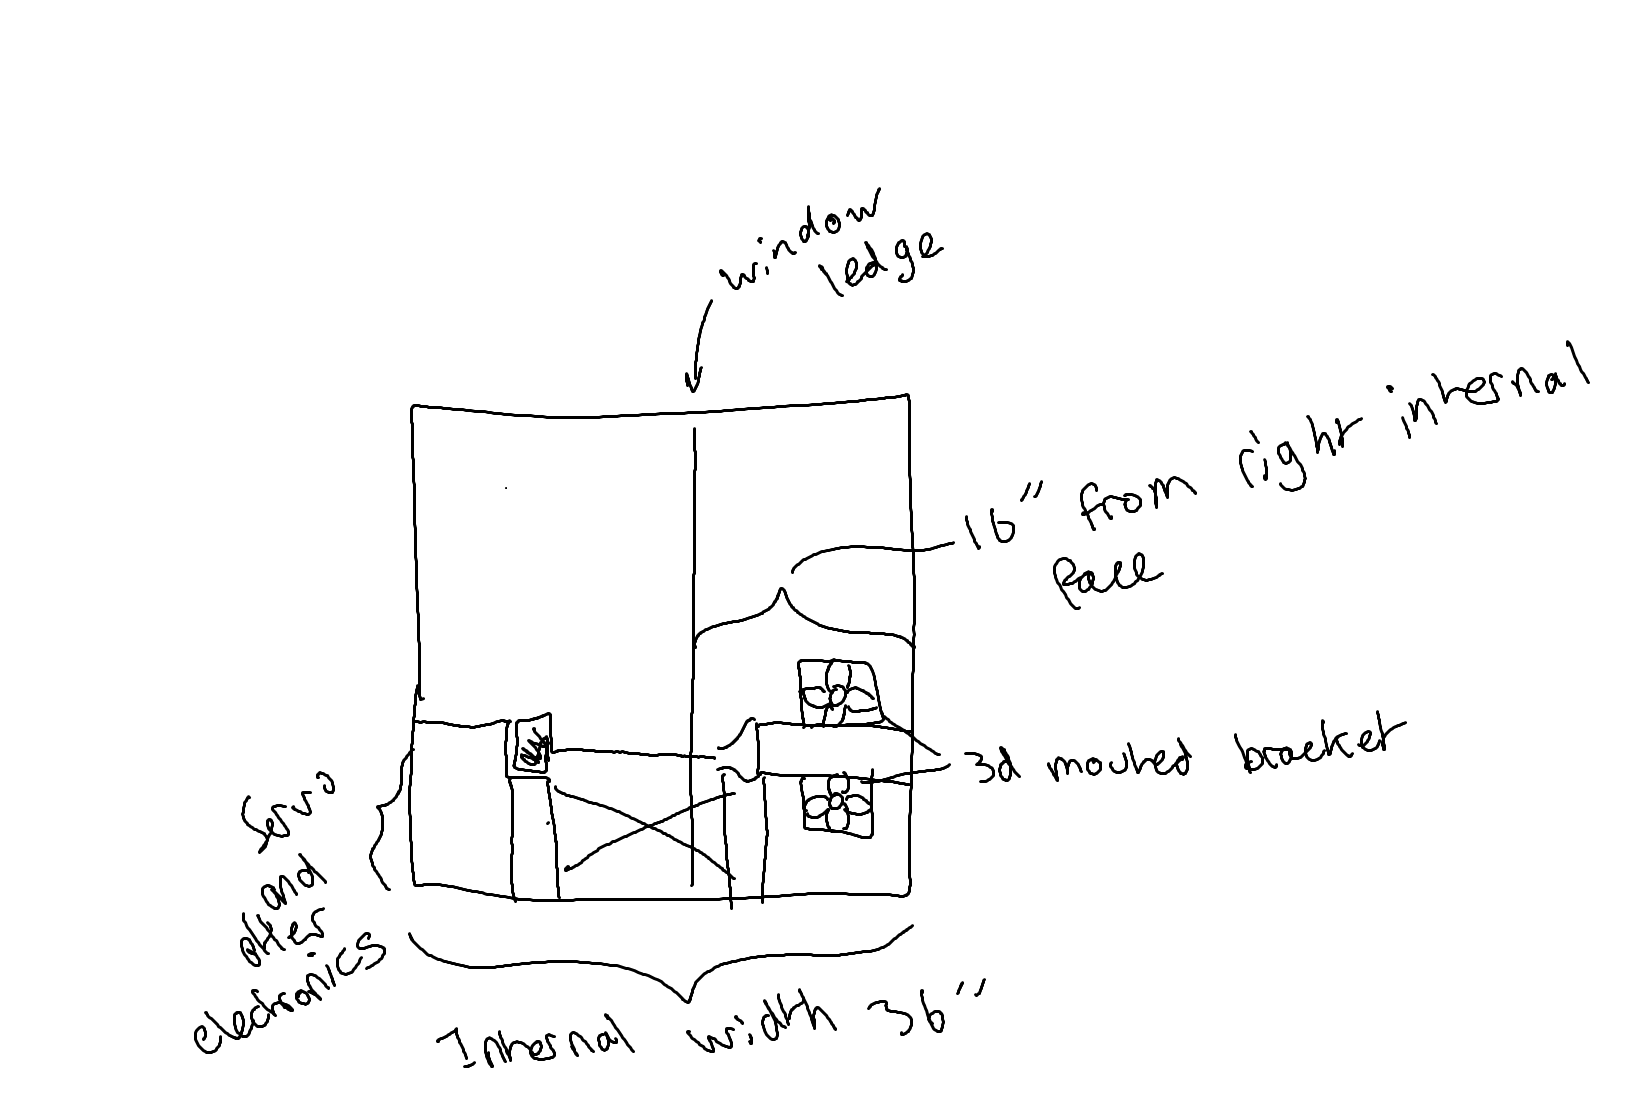 window
ledge
16" from right internal
face
3d mounted bracket
Servo
and
other
electronics
Internal width 36"